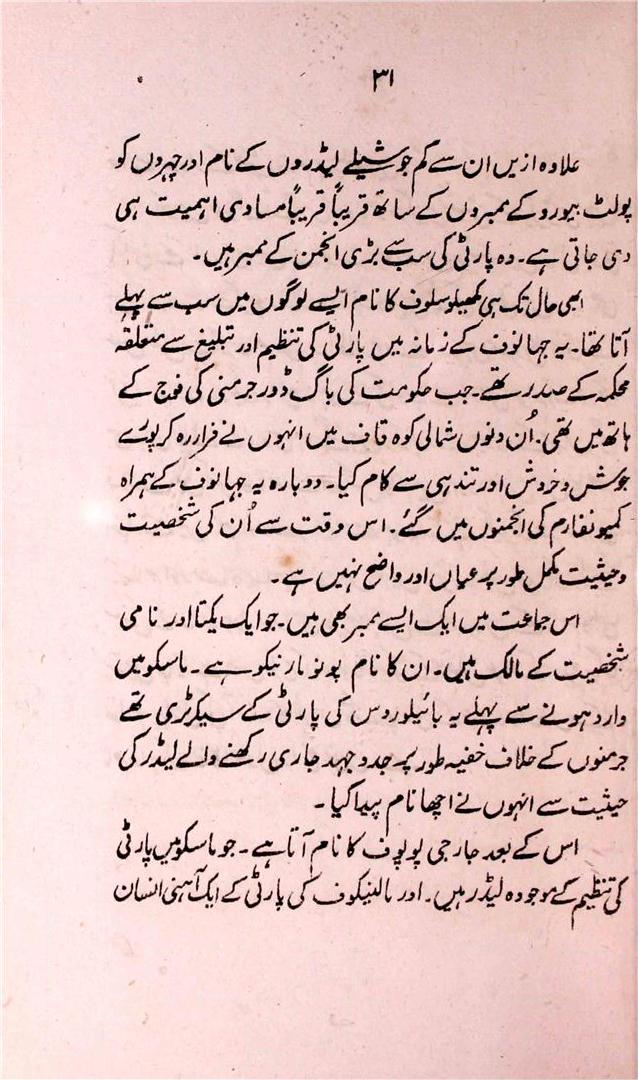 ۳۱
علاوہ ازیں ان سے کم جوشیلے لیڈروں کے نام اور چہروں کو
پولٹ بیورو کے ممبروں کے ساتھ قریباً قریباً مساوی اہمیت ہی
دی جاتی ہے۔ وہ پارٹی کی سب سے بڑی انجمن کے ممبر ہیں۔
ابھی حال تک ہی کمھیلو سلوف کا نام ایسے لوگوں میں سب سے پہلے
آتا تھا۔ یہ جہانوف کے زمانہ میں پارٹی کی تنظیم اور تبلیغ سے متعلقہ
محکمہ کے صدر تھے۔ جب حکومت کی باگ ڈور جرمنی کی فوج کے
ہاتھ میں تھی۔ اُن دنوں شمالی کوہ قاف میں انہوں نے فرار رہ کر پورے
جوش و خروش اور تندہی سے کام کیا۔ دوبارہ یہ جہانوف کے ہمراہ
کمیونفارم کی انجمنوں میں گئے۔ اس وقت سے اُن کی شخصیت
و حیثیت مکمل طور پر عیاں اور واضح نہیں ہے۔
اس جماعت میں ایک ایسے ممبر بھی ہیں۔ جو ایک یکتا اور نامی
شخصیت کے مالک ہیں۔ ان کا نام پونومارنیکو ہے۔ ماسکو میں
وارد ہونے سے پہلے یہ بائیلوروس کی پارٹی کے سیکرٹری تھے
جرمنوں کے خلاف خفیہ طور پر جدوجہد جاری رکھنے والے لیڈر کی
حیثیت سے انہوں نے اچھا نام پیدا کیا۔
اس کے بعد جارجی پوپوف کا نام آتا ہے۔ جو ماسکو میں پارٹی
کی تنظیم کے موجودہ لیڈر ہیں۔ اور مالینکوف کی پارٹی کے ایک آہنی انسان